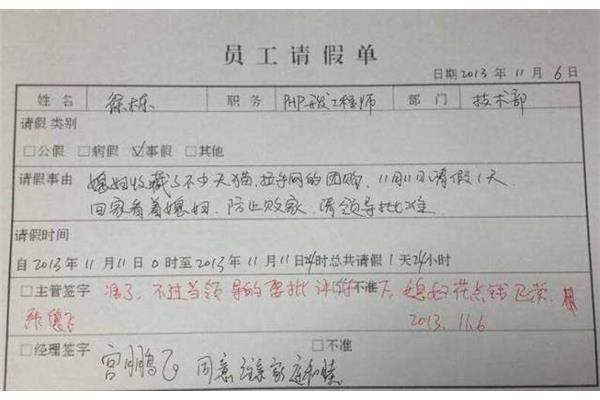 员工请假单
日期2013年11月6日
姓名 徐栋 职务 PHP开发工程师 部门 技术部
请假类别
□公假 □病假 ☑事假 □其他
请假事由 媳妇收藏了不少天猫、拉手网的团购,11月11日请假1天
回家看着媳妇,防止败家,请领导批准
请假时间
自2013年11月11日0时至2013年11月11日24时总共请假1天24小时
□主管签字 准了,不过当领导的要批评 不准 媳妇花点钱
2013.11.6
□经理签字 □不准
宫鹏飞 同意 家庭和睦